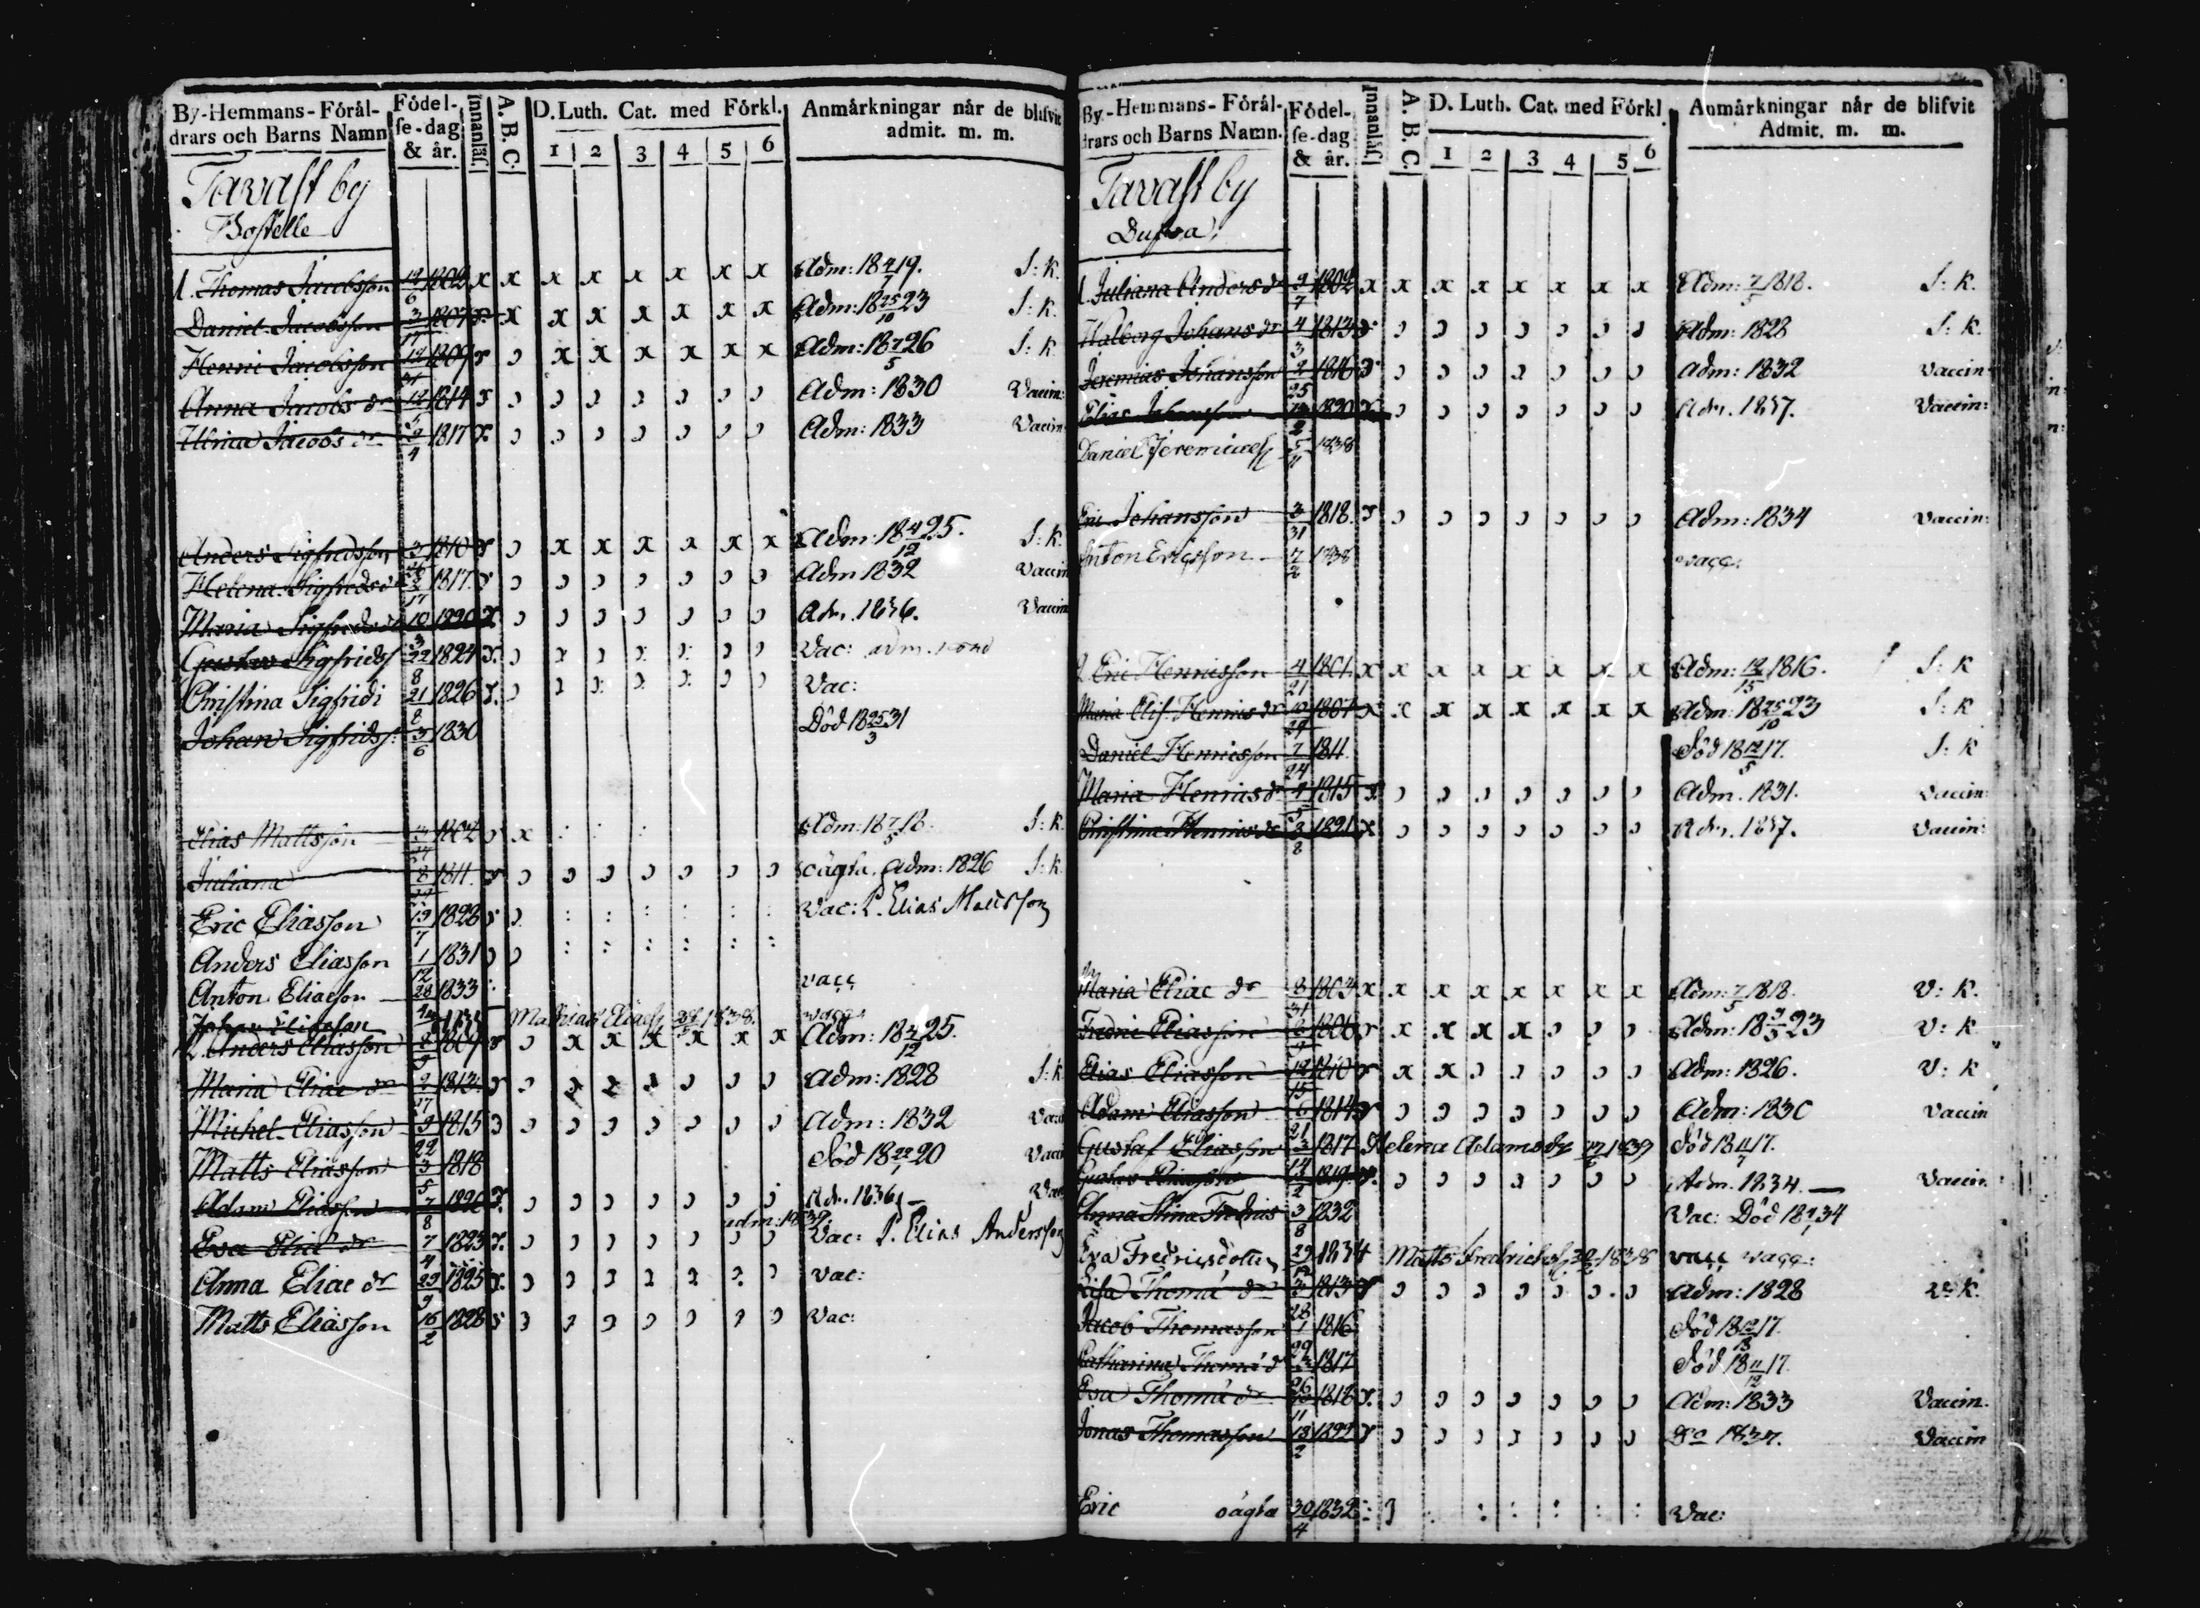 By-Hemmans-Förål-
drars och Barns Namn
Födel-
se-dag
& år.
Innanläs.
A. B. C.
D. Luth. Cat. med Förkl.
1 2 3 4 5 6
Anmärkningar når de blifvit
admit. m. m.
Tavast by
Bostelle
1. Thomas Jacobsson 19/6 1802 x x x x x x x x Adm: 18 4/7 19. S: k.
Daniel Jacobsson 3/11 1807 x x x x x x x Adm: 18 25/10 23 S: k.
Henric Jacobsson 1809 x x x x x x Adm: 18 7/5 26 S: k.
Anna Jacobs dr 12 1814 Adm: 1830 Vaccin:
Ulrica Jacobs dr 9/4 1817 Adm: 1833 Vaccin
Anders Sigfredsson 3 1810 x x x x x x Adm: 18 4/12 25. S: k.
Helena Sigfreds dr 1817 Adm 1832 Vaccin
Maria Sigfreds dr 10/3 1820 Adm. 1836. Vaccin
Gustav Sigfrids 22/8 1824 Vac:
Christina Sigfridi 21/8 1826 Vac:
Johan Sigfridss: 3/6 1830 Död 18 25/3 31
Elias Mattsson 1802 x Adm: 18 7/5 18. S: k.
Juliana 8 1811. oägta. Adm: 1826 S: k.
Eric Eliasson 19/7 1828 Vac: P. Elias Mattsson
Anders Eliasson 1/12 1831
Anton Eliasson 28 1833 vacc
Johan Eliasson Mathias Eliass 1838. vacc
2. Anders Eliasson 8/9 1809 x x x x x x Adm: 18 4/12 25.
Maria Eliae dr 2/27 1813 Adm: 1828 S: k
Michel Eliasson 9/22 1815 Adm: 1832
Matts Eliasson 3/5 1818 Död 18 22/1 20
Adam Eliasson 7/8 1820 Adm. 1836
Eva Eliae dr 7/4 1823 adm: 1839 Vac: P. Elias Andersson
Anna Eliae dr 29/9 1825 Vac:
Matts Eliasson 16/2 1828 Vac:
By-Hemmans-Förål-
drars och Barns Namn.
Födel-
se-dag
& år.
Innanläs.
A. B. C
D. Luth. Cat. med Förkl
1 2 3 4 5 6
Anmärkningar når de blifvit
Admit. m. m.
Tavast by
Dufva
1. Juliana Anders dr 9/7 1802 x x x x x x x x Adm: 7/5 1818. S: k.
Walborg Johans dr 4/3 1813 Adm: 1828 S: k.
Jeremias Johansson 2/25 1816 Adm: 1832 Vaccin:
Elias Johansson 1820 Adm. 1837. Vaccin:
Daniel Jeremiaess 5/11 1838
Eric Johansson 3/31 1818. Adm: 1834 Vaccin:
Anton Ericsson 7/2 1838 vacc:
2 Eric Henricsson 4/21 1801. x x x x x x x x Adm: 12/15 1816. S: k
Maria Elis: Henrics dr 10/29 1807 x x x x x x x x Adm: 18 25/10 23 S: k
Daniel Henricsson 7/24 1811. Död 18 12/5 17. S: k
Maria Henrics dr 1815 Adm. 1831. Vaccin:
Christina Henrics dr 3/8 1821 Adm. 1837. Vaccin:
Maria Eliae dr 8/31 1804 x x x x x x x x Adm: 7/5 1818. V: k.
Fredric Eliasson 1806 x x x x Adm: 18 9/3 23 V: k
Elias Eliasson 12/15 1810 x x Adm: 1826. V: k
Adam Eliasson 6/21 1814 Adm: 1830 Vaccin
Gustaf Eliasson 1817 Helena Adams dr 1839 Död 18 11/7 17.
Gustav Eliasson 1819. Adm. 1834. Vaccin.
Anna Stina Fredrics 3/8 1832 Vac: Död 1834
Eva Fredricsdotter 29/12 1834 Matts Fredricks 1838 vacc vacc:
Lisa Thomae dr 3/28 1813 Adm: 1828 V: k.
Jacob Thomasson 1/29 1816 Död 18 12/13 17.
Catharina Thomae dr 1817 Död 18 11/12 17.
Eva Thomae dr 1818 Adm: 1833 Vaccin.
Jonas Thomasson 13/2 1822 Do 1837. Vaccin
Eric oägta 30/4 1832 Vac: